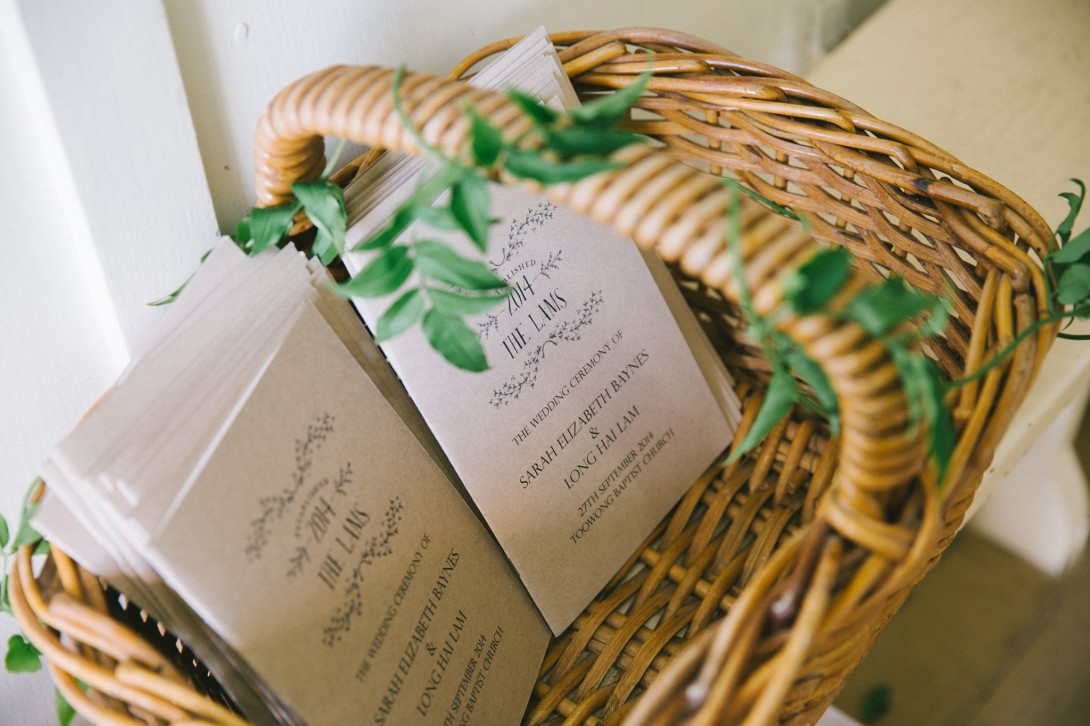 2014
THE LAMS
THE WEDDING CEREMONY OF
SARAH ELIZABETH BAYNES
&
LONG HAI LAM
27TH SEPTEMBER 2014
TOOWONG BAPTIST CHURCH
ESTABLISHED
2014
THE LAMS
THE WEDDING CEREMONY OF
SARAH ELIZABETH BAYNES
&
LONG HAI LAM
27TH SEPTEMBER 2014
TOOWONG BAPTIST CHURCH